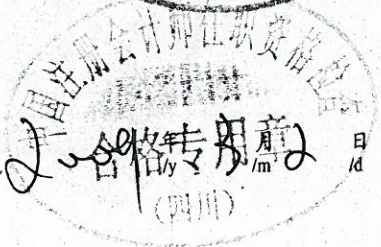 中国注册会计师任职资格检查
合格专用章
2009年/y 3月/m 2日/d
(四川)